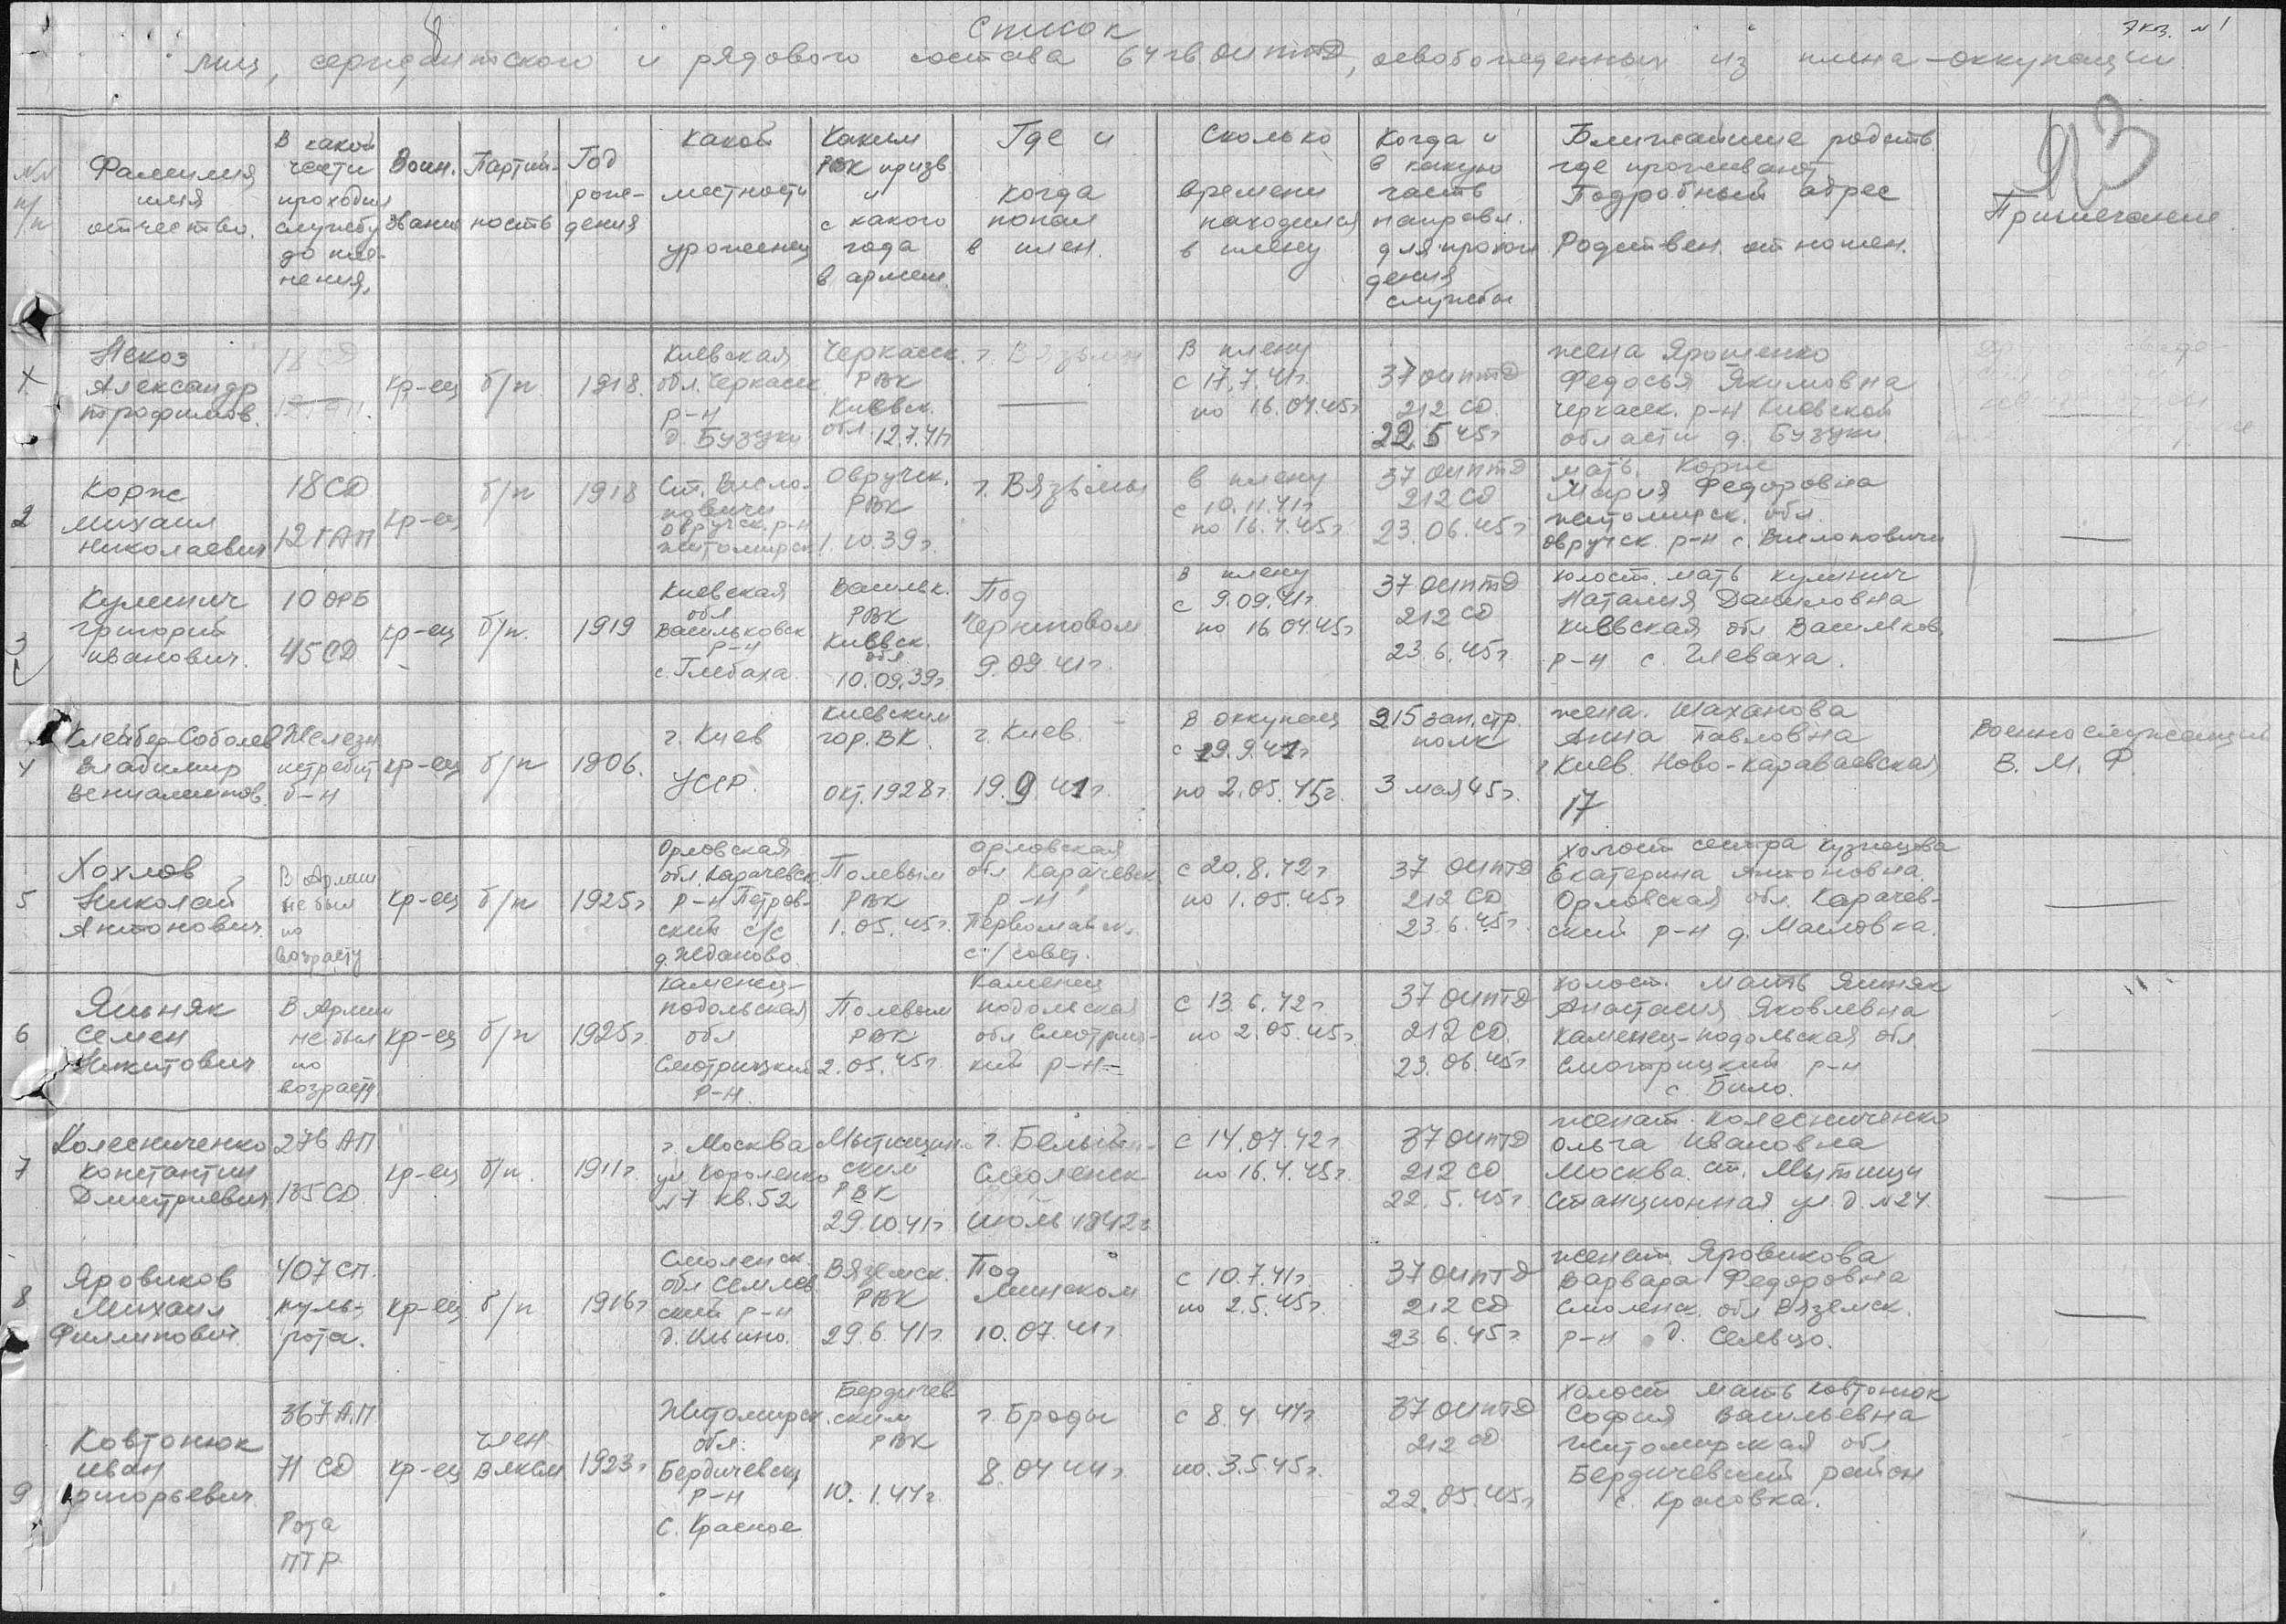 Экз. №1
Список
лиц, сержантского и рядового состава 64 гв ОИПТД, освобожденных из плена-оккупации
93
№№ п/п
Фамилия имя отчество.
В какой части проходил службу до пле-нения,
Воин. звание
Партий-ность
Год рож-дения
Какой местности уроженец
Каким РВК призв. и с какого года в армии.
Где и когда попал в плен.
Сколько времени находился в плену
Когда и в какую часть направл. для прохож дения службы
Ближайшие родств. где проживают Подробный адрес Родствен. отношен.
Примечание
1
Некоз
Александр
Трофимов.
18 СД
12 ГАП.
кр-ец
б/п
1918.
Киевская
обл. Черкасск
р-н
д. Бузуки
Черкасск.
РВК
Киевск.
обл. 12.7.41г
г. Вязьма
В плену
с 17.7.41г.
по 16.04.45г
37 ОИПТД
212 СД.
22.5 45г
жена Ярошенко
Федосья Якимовна
Черкасск. р-н Киевской
области д. Бузуки.
2
Корж
Михаил
Николаевич
18 СД
12 ГАП
кр-ец
б/п
1918
Овручск. р-н
Житомирск
Овручск.
РВК
1.10.39г.
г. Вязьмы
в плену
с 10.11.41г
по 16.4.45г
37 ОИПТД
212 СД
23.06.45г
мать Корж
Мария Федоровна
Житомирск. обл.
Овручск р-н с.
3
Кулинич
Григорий
Иванович.
10 ОРБ
45 СД
кр-ец
б/п.
1919
Киевская
обл
Васильковск
р-н
с. Глебаха
Васильк.
РВК
Киевск.
обл
10.09.39г
Под
Черниговом
9.09 41г.
В плену
с 9.09.41г
по 16.04.45г
37 ОИПТД
212 СД
23.6.45г
холост. мать Кулинич
Наталия Даниловна
Киевская обл Васильков.
р-н с. Глеваха.
4
Клейбер-Соболев
Владимир
Вениаминов.
Железн.
истребит
б-н
кр-ец
б/п
1906.
г. Киев
УССР.
Киевским
гор. ВК.
окт. 1928г
г. Киев.
19.9 41г.
В оккупац
с 19.9.41г
по 2.05.45г.
215 зап. стр.
полк
3 мая 45г.
жена. Шаханова
Анна Павловна
г Киев Ново-Караваевская
17
Военнослужащий
В. М. Ф.
5
Хохлов
Николай
Антонович.
В Армии
не был
по
возрасту
кр-ец
б/п
1925г
Орловская
обл. Карачевск
р-н Петров-
ский с/с
д. Жданово.
Полевым
РВК
1.05.45г.
Орловская
обл. Карачевск
р-н
Первомайск.
с/совет.
с 20.8.42г
по 1.05.45г
37 ОИПТД
212 СД
23.6.45г.
холост сестра Кузнецова
Екатерина Антоновна.
Орловская обл. Карачев-
ский р-н д. Масловка.
6
Яшняк
Семен
Никитович
В Армии
не был
по
возрасту.
кр-ец
б/п
1925г.
Каменец-
подольская
обл
Смотрицкий
р-н
Полевым
РВК
2.05.45г.
Каменец
подольская
обл Смотриц-
кий р-н-
С 13.6.42г.
по 2.05.45г
37 ОИПТД
212 СД.
23.06.45г
холост. мать Яшняк
Анастасия Яковлевна
Каменец-подольская обл
Смотрицкий р-н
7
Колесниченко
Константин
Дмитриевич
276 АП
185 СД.
кр-ец
б/п.
1911г.
г. Москва
ул Короленко
№7 кв. 52
Мытищин-
ским
РВК
29.10.41г
г. Белый
Смоленск
июль 1942г
с 14.07.42г
по 16.4.45г.
37 ОИПТД
212 СД
22.5.45г
женат Колесниченко
Ольга Ивановна
Москва. ст. Мытищи
Станционная ул. д. №24.
8
Яровиков
Михаил
Филлипович.
407 СП.
пуль-
рота.
кр-ец
б/п
1916г
Смоленск.
обл Семлев
ский р-н
д. Ильино.
Вяземск.
РВК
29.6.41г
Под
Минском
10.07.41г
с 10.7.41г
по 2.5.45г.
37 ОИПТД
212 СД
23.6.45г.
женат. Яровикова
Варвара Федоровна
Смоленск обл Вяземск.
р-н д. Сельцо.
9
Ковтонюк
Иван
Григорьевич
367 А.П
71 СД
Рота
ПТР
кр-ец
член
ВЛКСМ
1923г
Житомирск.
обл.
Бердичевск
р-н
с. Красное
Бердичев
ским
РВК
10.1.44г.
г. Броды
8.04 44г
с 8.4.44г
по. 3.5.45г.
37 ОИПТД
212 СД
22.05.45г
холост мать Ковтонюк
София Васильевна
Житомирская обл
Бердичевский район
с. Красовка.